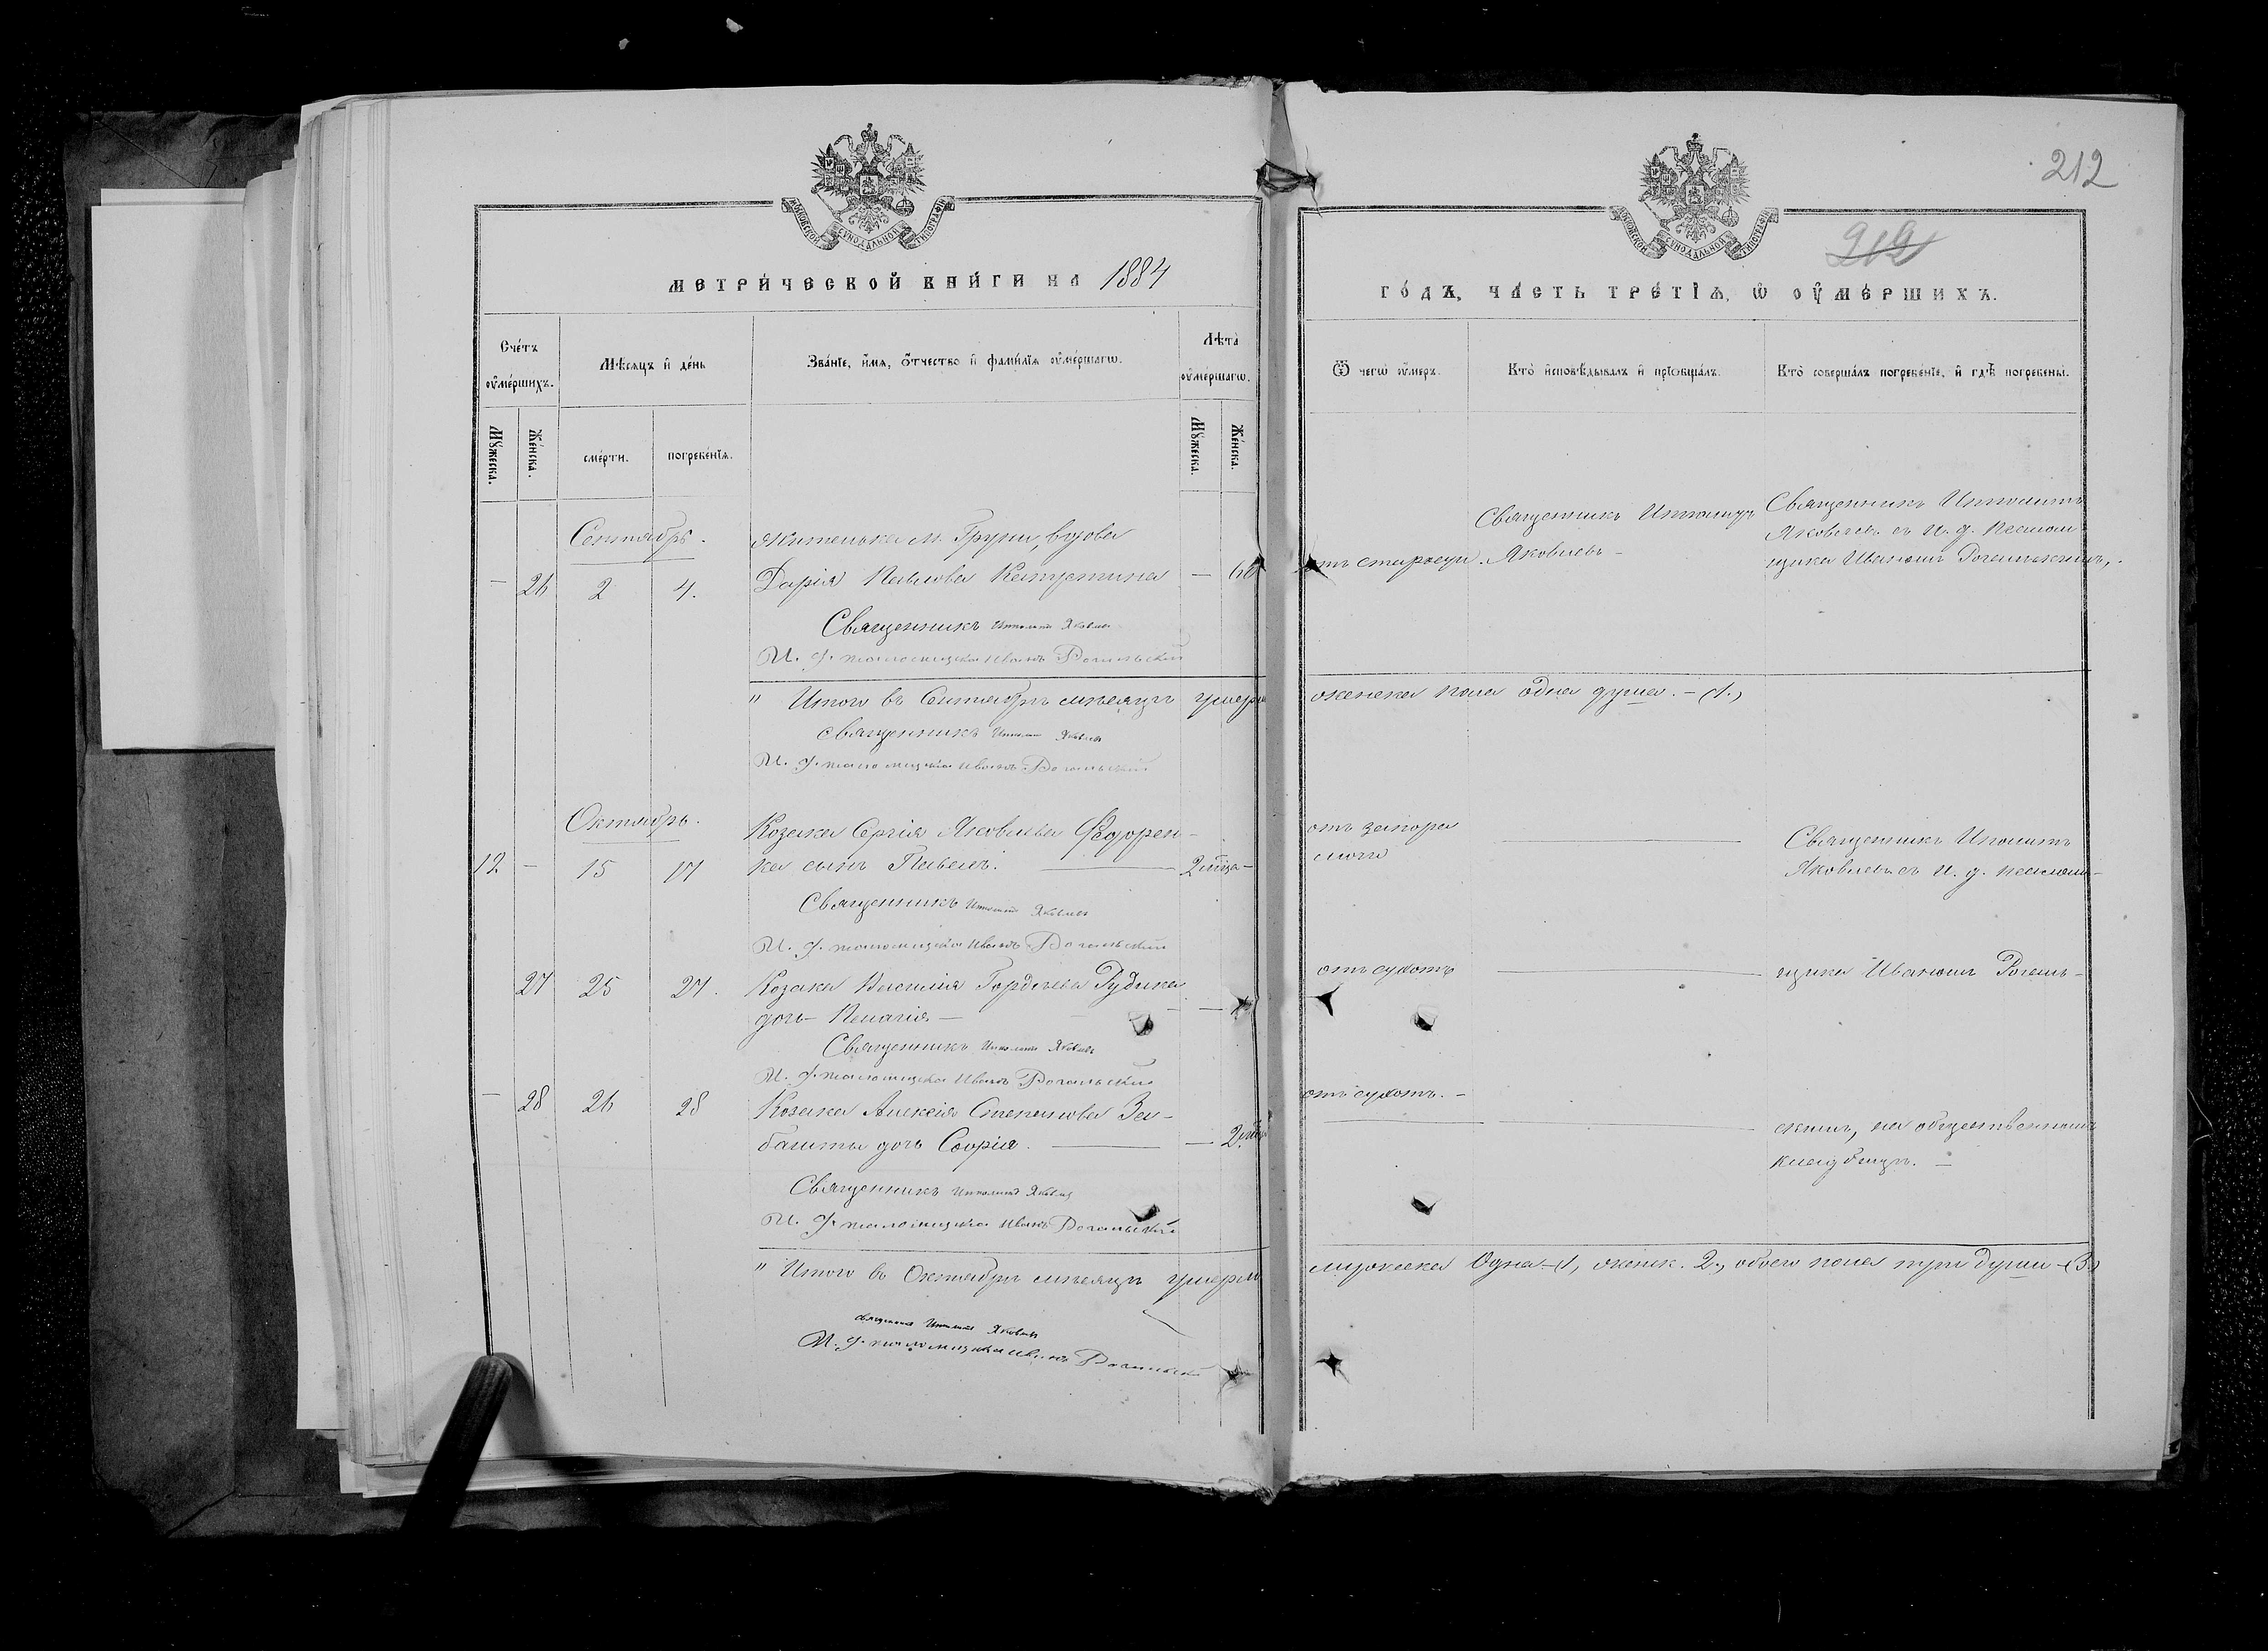 МОСКОВСКОЙ СѴНОДАЛЬНОЙ ТИПОГРАФІИ
МЕТРИ́ЧЕСКОЙ КНИ́ГИ НА 1884
Сче́тъ ᲂу҆ме́ршихъ.
Мѣ́сяцъ и҆ де́нь
Зва́нїе, и҆́мѧ, ѻ҆́тчество и҆ фами́лїѧ ᲂу҆ме́ршагѡ.
Лѣ́та ᲂу҆ме́ршагѡ.
Мꙋ́жеска.
Же́нска.
сме́рти.
погребе́нїѧ.
Мꙋ́жеска.
Же́нска.
Сентябрь.
Жителька м. Груни, вдова
— 26 2 4. Дарія Павлова Капустина —
Священникъ Ипполитъ Яковлев
И. д. псаломщика Иванъ Рогальскій
" Итого въ Сентябрѣ мѣсяцѣ умерло
Священникъ Ипполитъ Яковлевъ
И. д. псаломщика Иванъ Рогальскій
Октябрь.
Козака Сергія Яковлева Федорен-
12. — 15 17 ка сынъ Павелъ. —
Священникъ Ипполитъ Яковлевъ
И. д. псаломщика Иванъ Рогальскій
27 25 27. Козака Василія Гордѣева Рудика
дочь Пелагія —
Священникъ Ипполитъ Яковлевъ
И. д. псаломщика Иванъ Рогальскій
— 28 26 28 Козака Алексія Степанова За-
башты дочь Софія. —
Священникъ Ипполитъ Яковлев
И. д. псаломщика Иванъ Рогальскій
" Итого въ Октябрѣ мѣсяцѣ умерло
священникъ Ипполитъ Яковлевъ
И. д. псаломщика Иванъ Рогальскій
212
212
МОСКОВСКОЙ СѴНОДАЛЬНОЙ ТИПОГРАФІИ
ГО́ДЪ, ЧА́СТЬ ТРЕ́ТЇѦ, Ѡ҆ ОУ҆МЕ́РШИХЪ.
Ѿ чегѡ̀ ᲂу҆́меръ.
Кто̀ и҆сповѣ́дывалъ и҆ прїѡбща́лъ.
Кто̀ соверша́лъ погребе́нїе, и҆ гдѣ̀ погребены̀.
отъ старости.
Священникъ Ипполитъ
Яковлевъ —
Священникъ Ипполитъ
Яковлевъ съ И. д. псалом
щика Иваномъ Рогальскимъ,
женска пола одна душа. — (1.)
отъ запора
мочи
Священникъ Иполитъ
Яковлевъ съ И. д. псалом-
отъ сухотъ
щика Иваномъ Рогаль-
отъ сухотъ. —
скимъ, на общественномъ
кладбищѣ. —
мужеска Одна—(1, женск. 2., обоего пола три души—(3.)